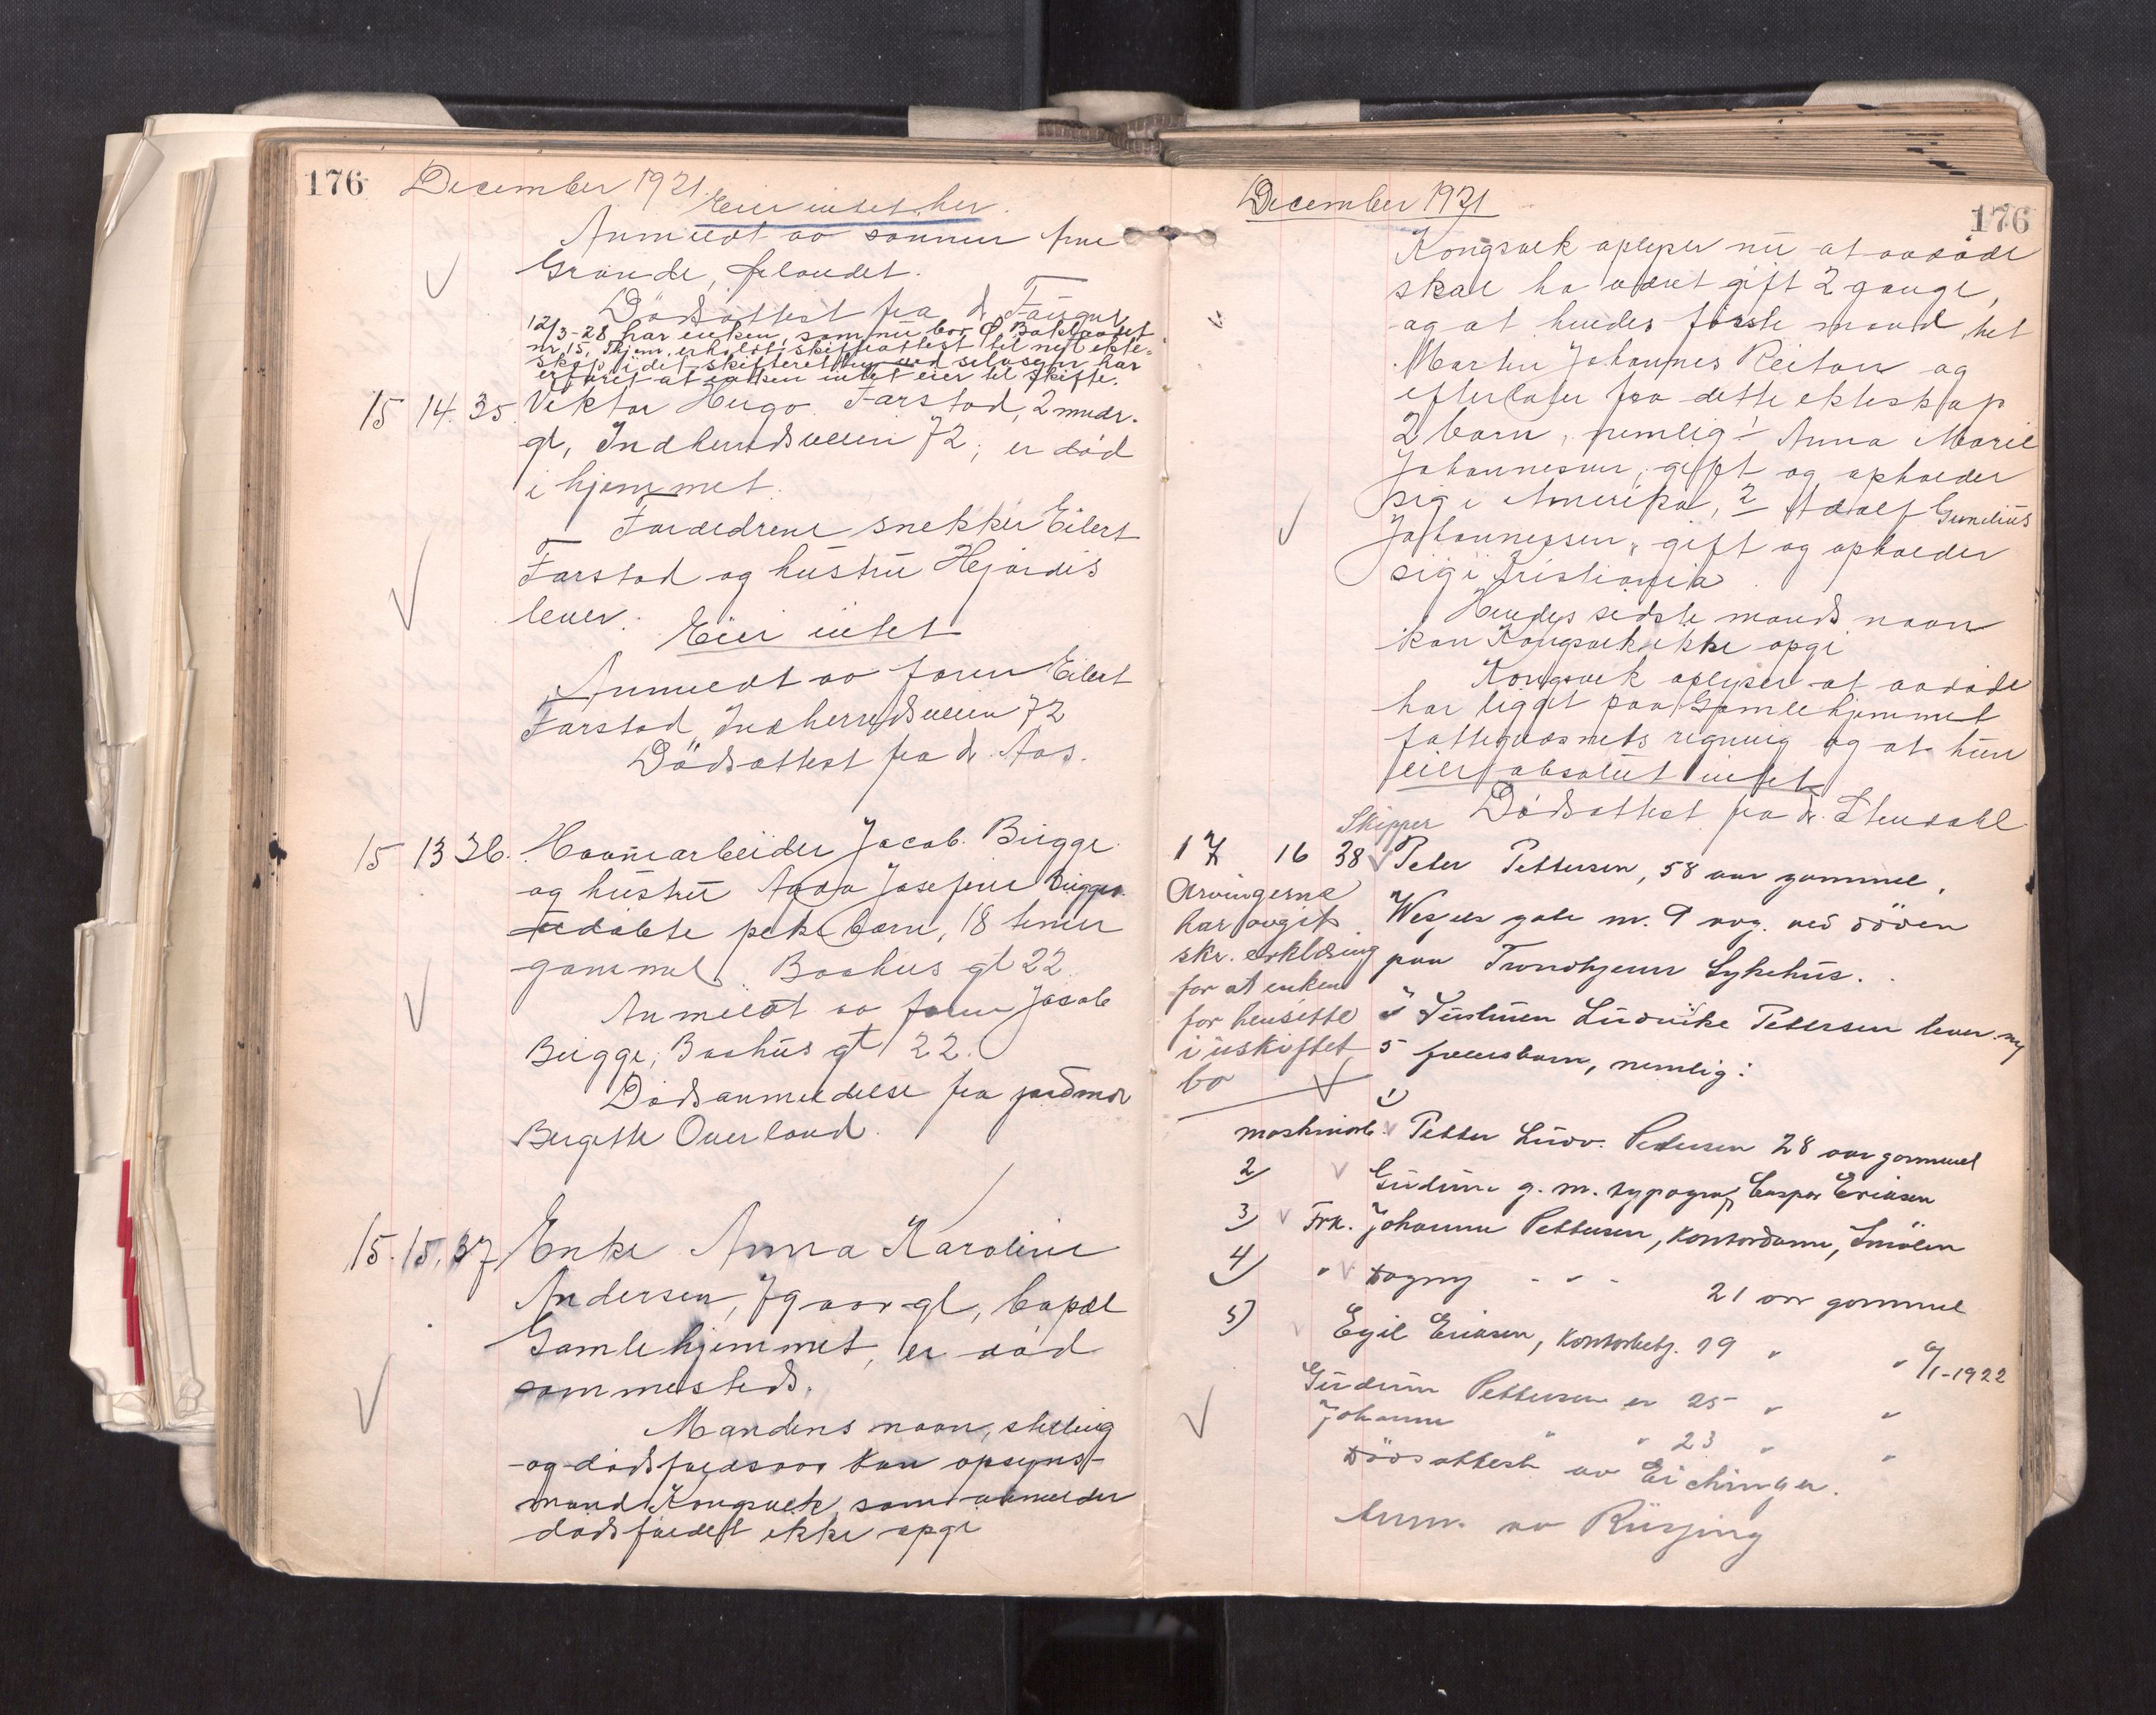 176 December 1921.
Eier intet her.
Anmeldt av sønnen frue
Grande, 
Dødsattest fra dr.
12/3-28 har enken, som nu bor Ø. Baklandet
nr 15, Thjem, erholdt skifteattest til nyt ekte-
skap, idet skifteretten ved selvsyn har
erfaret at enken intet eier til skifte.
15 14. 35. Viktor Hugo Farstad, 2 mndr.
gl, Indherredsveien 72, er død
i hjemmet.
Forældrene snekker Eilert
Farstad og hustru Hejørdis
lever.
Eier intet
Anmeldt av faren Eilert
Farstad, Indherredsveien 72
Dødsattest fra dr. Aas.
15 13 36. Havnearbeider Jacob Bügge
og hustru Josefine Bügges
udøbte pikebarn, 18 timer
gammel. Baahus gt 22.
Anmeldt av faren Jacob
Bügge, Baahus gt 22.
Dødsanmeldelse fra jordmor
Bergitte Overland.
15. 15. 37 Enke Anna Karoline
Andersen, 79 aar gl, bopæl
Gamlehjemmet, er død
sammesteds.
Mandens navn, stilling
og dødsfaldsaar kan opsyns-
mand Kongsvek, som anmelder
dødsfaldet ikke opgi
December 1921
176
Kongsvek oplyser nu at avdøde
skal ha været gift 2 gange,
og at hendes første mand het
Martin Johannes Reitan og
efterlater fra dette ekteskap
2 barn, nemlig: Anna Marie
Johannesen, gift og opholder
sig i Amerika, 2 Adolf Gunelius
Johannessen, gift og opholder
sig i Kristiania.
Hendes sidste mands navn
kan Kongsvek ikke opgi
Kongsvek oplyser at avdøde
har ligget paa Gamlehjemmet
fattigvæsnets regning og at hun
eier absolut intet
Dødsattest fra dr. Stendahl
Skipper
17 16 38 Peter Pettersen, 58 aar gammel,
Wessels gate nr. 9 avg. ved døden
paa Trondhjems Sykehus.
Arvingerne
har avgit
skr. erklæring
for at enken
for hensitte
i uskiftet
bo
Hustruen Ludvike Pettersen lever og
5 fællesbarn, nemlig:
1)
maskinarb. Petter Ludv. Pedersen 28 aar gammel
2) Gudrun g. m. typograf Caspar Eriksen
3) Frk. Johanne Pettersen, kontordame, Smölen
4) " Dagny - " - 21 aar gammel
5) Egil Eriksen, kontorbetj. 19 " " 9/1-1922
Gudrun Pettersen er 25 " "
Johanne " " 23 " "
Dödsattest av Eichinger.
Anm. av Rüsjing